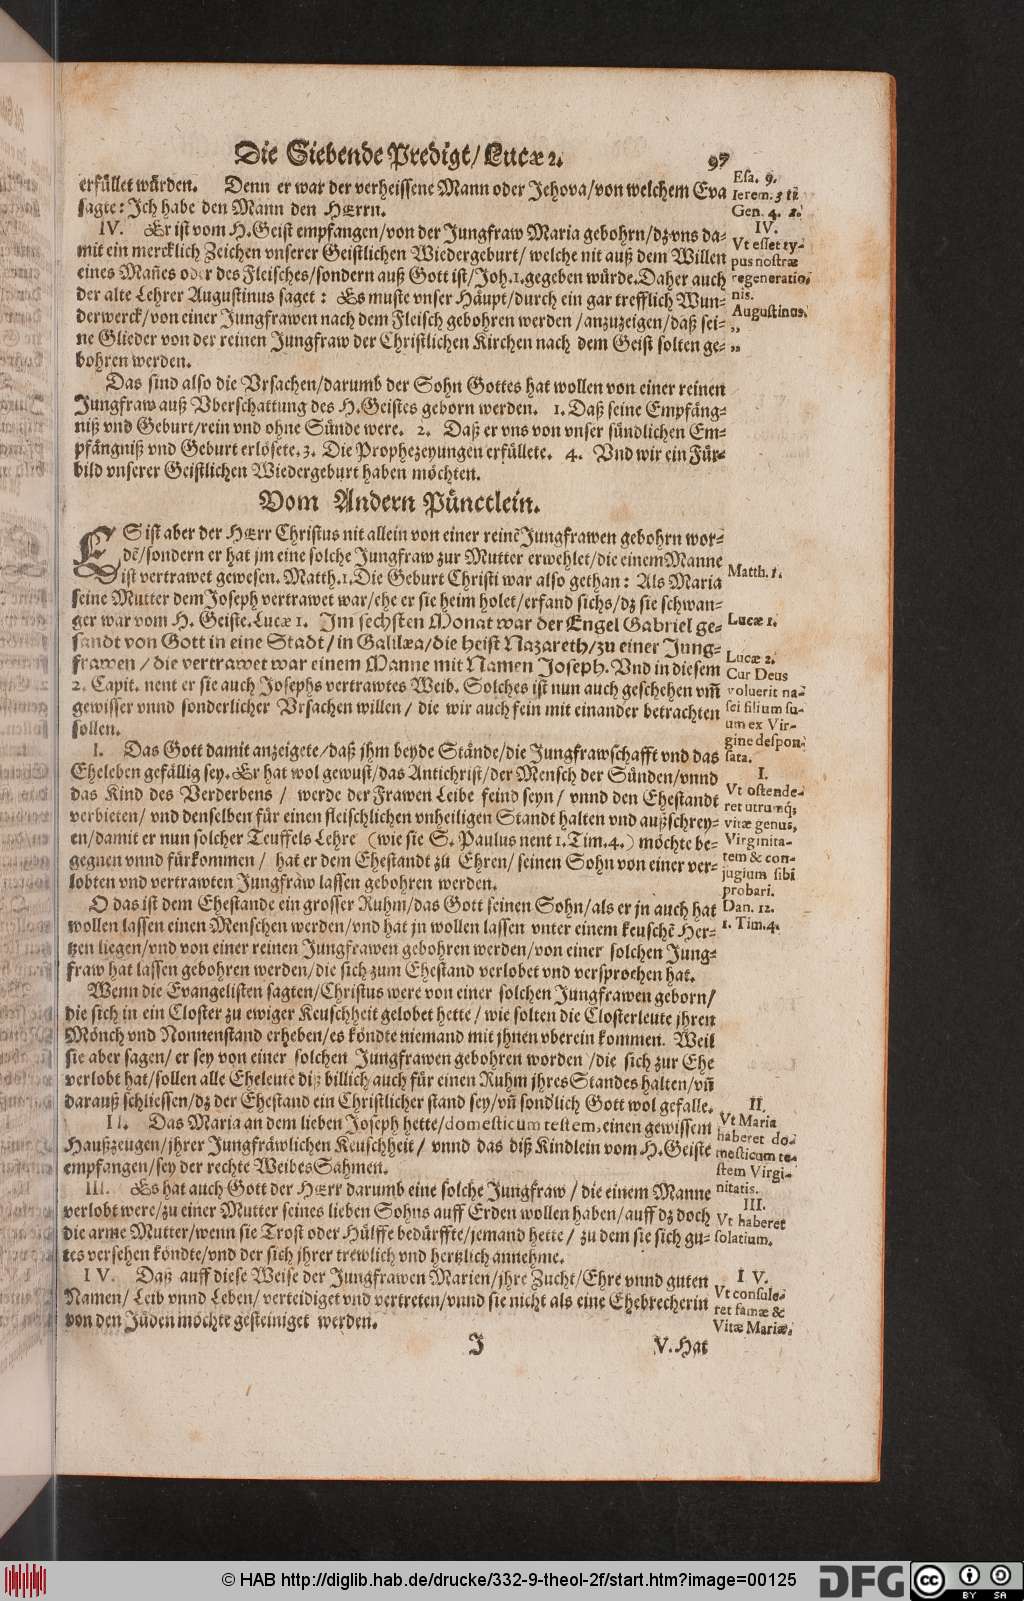 Die Siebende Predigt/ Lucæ 2. 97
erfüllet würden. Denn er war der verheissene Mann oder Jehova/von welchem Eva
sagte: Ich habe den Mann den HErrn.
IV. Er ist vom H. Geist empfangen/von der Jungfraw Maria gebohrn/dz vns da-
mit ein mercklich Zeichen vnserer Geistlichen Wiedergeburt/ welche nit auß dem Willen
eines Mañes oder des Fleisches/sondern auß Gott ist/Joh.1.gegeben würde.Daher auch
der alte Lehrer Augustinus saget: Es muste vnser Häupt/durch ein gar trefflich Wun-
derwerck/von einer Jungfrawen nach dem Fleisch gebohren werden/anzuzeigen/daß sei-
ne Glieder von der reinen Jungfraw der Christlichen Kirchen nach dem Geist solten ge-
bohren werden.
Das sind also die Vrsachen/darumb der Sohn Gottes hat wollen von einer reinen
Jungfraw auß Vberschattung des H.Geistes geborn werden. 1. Daß seine Empfäng-
niß vnd Geburt/rein vnd ohne Sünde were. 2. Daß er vns von vnser sündlichen Em-
pfängniß vnd Geburt erlösete. 3. Die Prophezeyungen erfüllete. 4. Vnd wir ein Für-
bild vnserer Geistlichen Wiedergeburt haben möchten.
Vom Andern Pünctlein.
ES ist aber der HErr Christus nit allein von einer reinē Jungfrawen gebohrn wor-
dē/sondern er hat jm eine solche Jungfraw zur Mutter erwehlet/die einem Manne
ist vertrawet gewesen. Matth.1.Die Geburt Christi war also gethan: Als Maria
seine Mutter dem Joseph vertrawet war/ehe er sie heim holet/erfand sichs/dz sie schwan-
ger war vom H. Geiste.Lucæ 1. Im sechsten Monat war der Engel Gabriel ge-
sandt von Gott in eine Stadt/in Galilæa/die heist Nazareth/zu einer Jung-
frawen/die vertrawet war einem Manne mit Namen Joseph. Vnd in diesem
2. Capit. nent er sie auch Josephs vertrawtes Weib. Solches ist nun auch geschehen vm̃
gewisser vnnd sonderlicher Vrsachen willen/ die wir auch fein mit einander betrachten
sollen.
I. Das Gott damit anzeigete/daß jhm beyde Stände/die Jungfrawschafft vnd das
Eheleben gefällig sey. Er hat wol gewust/das Antichrist/der Mensch der Sünden/vnnd
das Kind des Verderbens/ werde der Frawen Leibe feind seyn/ vnnd den Ehestandt
verbieten/ vnd denselben für einen fleischlichen vnheiligen Standt halten vnd außschrey-
en/damit er nun solcher Teuffels Lehre (wie sie S. Paulus nent 1.Tim.4.) möchte be-
gegnen vnnd fürkommen/ hat er dem Ehestandt zu Ehren/ seinen Sohn von einer ver-
lobten vnd vertrawten Jungfraw lassen gebohren werden.
O das ist dem Ehestande ein grosser Ruhm/das Gott seinen Sohn/als er jn auch hat
wollen lassen einen Menschen werden/vnd hat jn wollen lassen vnter einem keuschē Her-
tzen liegen/vnd von einer reinen Jungfrawen gebohren werden/von einer solchen Jung-
fraw hat lassen gebohren werden/die sich zum Ehestand verlobet vnd versprochen hat.
Wenn die Evangelisten sagten/Christus were von einer solchen Jungfrawen geborn/
die sich in ein Closter zu ewiger Keuschheit gelobet hette/ wie solten die Closterleute jhren
Mönch vnd Nonnenstand erheben/es köndte niemand mit jhnen vberein kommen. Weil
sie aber sagen/ er sey von einer solchen Jungfrawen gebohren worden/die sich zur Ehe
verlobt hat/sollen alle Eheleute diß billich auch für einen Ruhm jhres Standes halten/vñ
darauß schliessen/dz der Ehestand ein Christlicher stand sey/vñ sond'lich Gott wol gefalle.
II. Das Maria an dem lieben Joseph hette/domesticum testem, einen gewissem
Haußzeugen/jhrer Jungfräwlichen Keuschheit/ vnnd das diß Kindlein vom H.Geiste
empfangen/sey der rechte Weibes Sahmen.
III. Es hat auch Gott der HErr darumb eine solche Jungfraw/die einem Manne
verlobt were/zu einer Mutter seines lieben Sohns auff Erden wollen haben/auff dz doch
die arme Mutter/wenn sie Trost oder Hülffe bedürffte/jemand hette/ zu dem sie sich gu-
tes versehen köndte/vnd der sich jhrer trewlich vnd hertzlich annehme.
IV. Daß auff diese Weise der Jungfrawen Marien/jhre Zucht/Ehre vnnd guten
Namen/ Leib vnnd Leben/ verteidiget vnd vertreten/vnnd sie nicht als eine Ehebrecherin
von den Jüden möchte gesteiniget werden.
J V. Hat
Esa. 9.
Ierem. 31
Gen. 4. 1.
IV.
Vt esset ty-
pus nostræ
regeneratio-
nis.
Augustinus.
„
„
Matth. 1.
Lucæ 1.
Lucæ 2.
Cur Deus
voluerit na-
sci filium su-
um ex Vir-
gine despon-
sata.
I.
Vt ostende-
ret utrumq;
vitæ genus,
Virginita-
tem & con-
jugium sibi
probari.
Dan. 12.
1. Tim.4.
II.
Vt Maria
haberet do-
mesticum te-
stem Virgi-
nitatis.
III.
Vt haberet
solatium.
IV.
Vt consule-
ret famæ &
Vitæ Mariæ.
© HAB http://diglib.hab.de/drucke/332-9-theol-2f/start.htm?image=00125
DFG
cc
BY SA